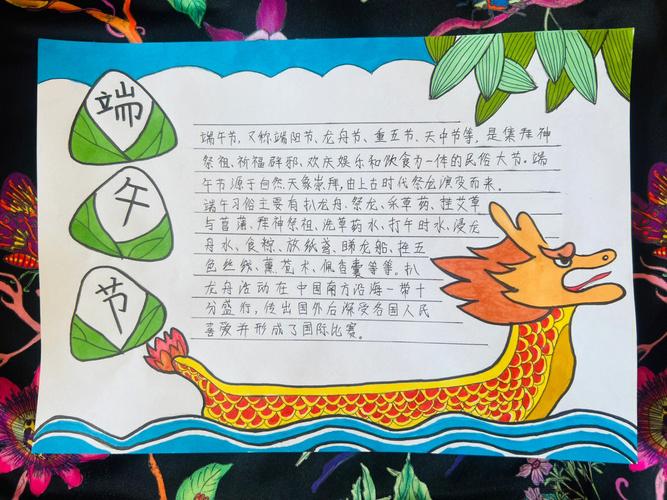 端
午
节
端午节，又称端阳节、龙舟节、重五节、天中节等，是集拜神
祭祖、祈福辟邪、欢庆娱乐和饮食为一体的民俗大节。端
午节源于自然天象崇拜，由上古时代祭龙演变而来。
端午习俗主要有扒龙舟、祭龙、采草药、挂艾草
与菖蒲、拜神祭祖、洗草药水、打午时水、浸龙
舟水、食粽、放纸鸢、睇龙船、拴五
色丝线、薰苍术、佩香囊等等。扒
龙舟活动在中国南方沿海一带十
分盛行，传出国外后深受各国人民
喜爱并形成了国际比赛。